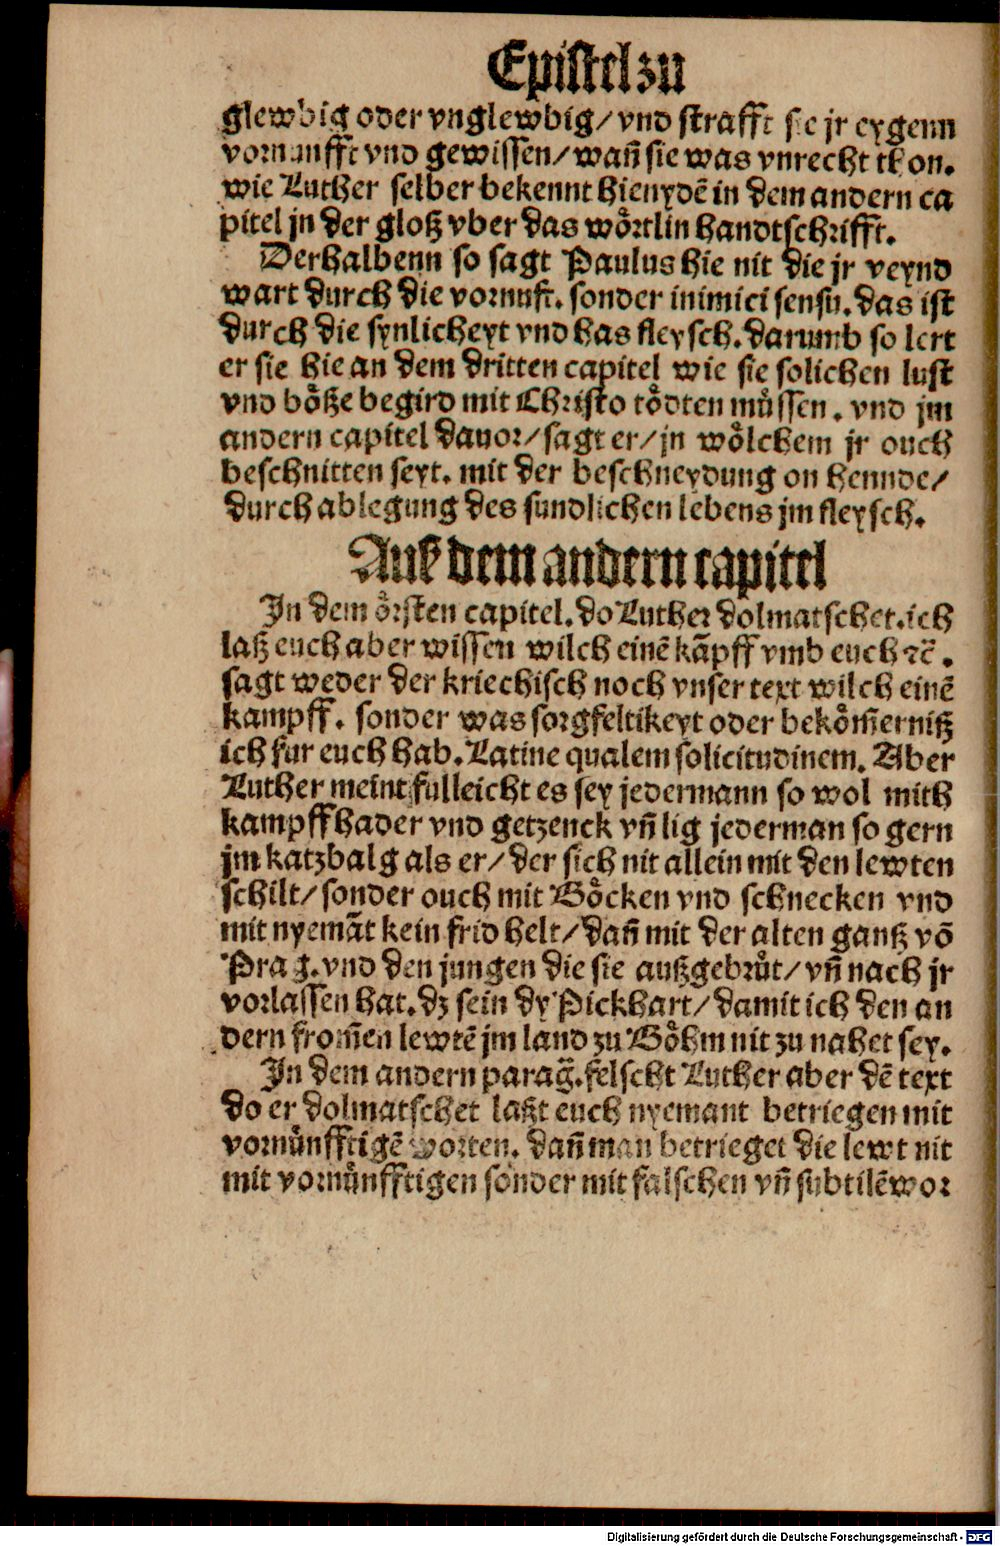 Epistel zu
glewbig oder vnglewbig/ vnd strafft sie jr eygenn
vornunfft vnd gewissen/ wañ sie was vnrecht thon.
wie Luther selber bekennt hienydē in dem andern ca
pitel jn der gloß vber das wörtlin handtschrifft.
Derhalbenn so sagt Paulus hie nit die jr veynd
wart durch die vornuft. sonder inimici sensu. das ist
durch die synlicheyt vnd has fleysch. darumb so lert
er sie hie an dem dritten capitel wie sie solichen lust
vnd böße begird mit Christo tödten müssen. vnd jm
andern capitel dauor/ sagt er/ jn wölchem jr ouch
beschnitten seyt. mit der beschneydung on hennde/
durch ablegung des sundlichen lebens jm fleysch.
Auß dem andern capitel
In dem örsten capitel. do Luther dolmatschet. ich
laß euch aber wissen wilch einē kãpff vmb euch ⁊c̄.
sagt weder der kriechisch noch vnser text wilch einē
kampff. sonder was sorgfeltikeyt oder beköm̃erniß
ich fur euch hab. Latine qualem solicitudinem. Aber
Luther meint fulleicht es sey jedermann so wol mith
kampff hader vnd getzenck vñ lig jederman so gern
jm katzbalg als er/ der sich nit allein mit den lewten
schilt/ sonder ouch mit Böcken vnd schnecken vnd
mit nyemãt kein frid helt/ dañ mit der alten ganß vō
Prag. vnd den jungen die sie außgebrüt/ vñ nach jr
vorlassen hat. dz sein dy Pickhart/ damit ich den an
dern from̃en lewtē jm land zu Böhm nit zu nahet sey.
In dem andern parag̃. felscht Luther aber dē text
do er dolmatschet laßt euch nyemant betriegen mit
vornünfftigē worten. dañ man betrieget die lewt nit
mit vornünfftigen sonder mit falschen vñ subtilē wor
Digitalisierung gefördert durch die Deutsche Forschungsgemeinschaft - DFG